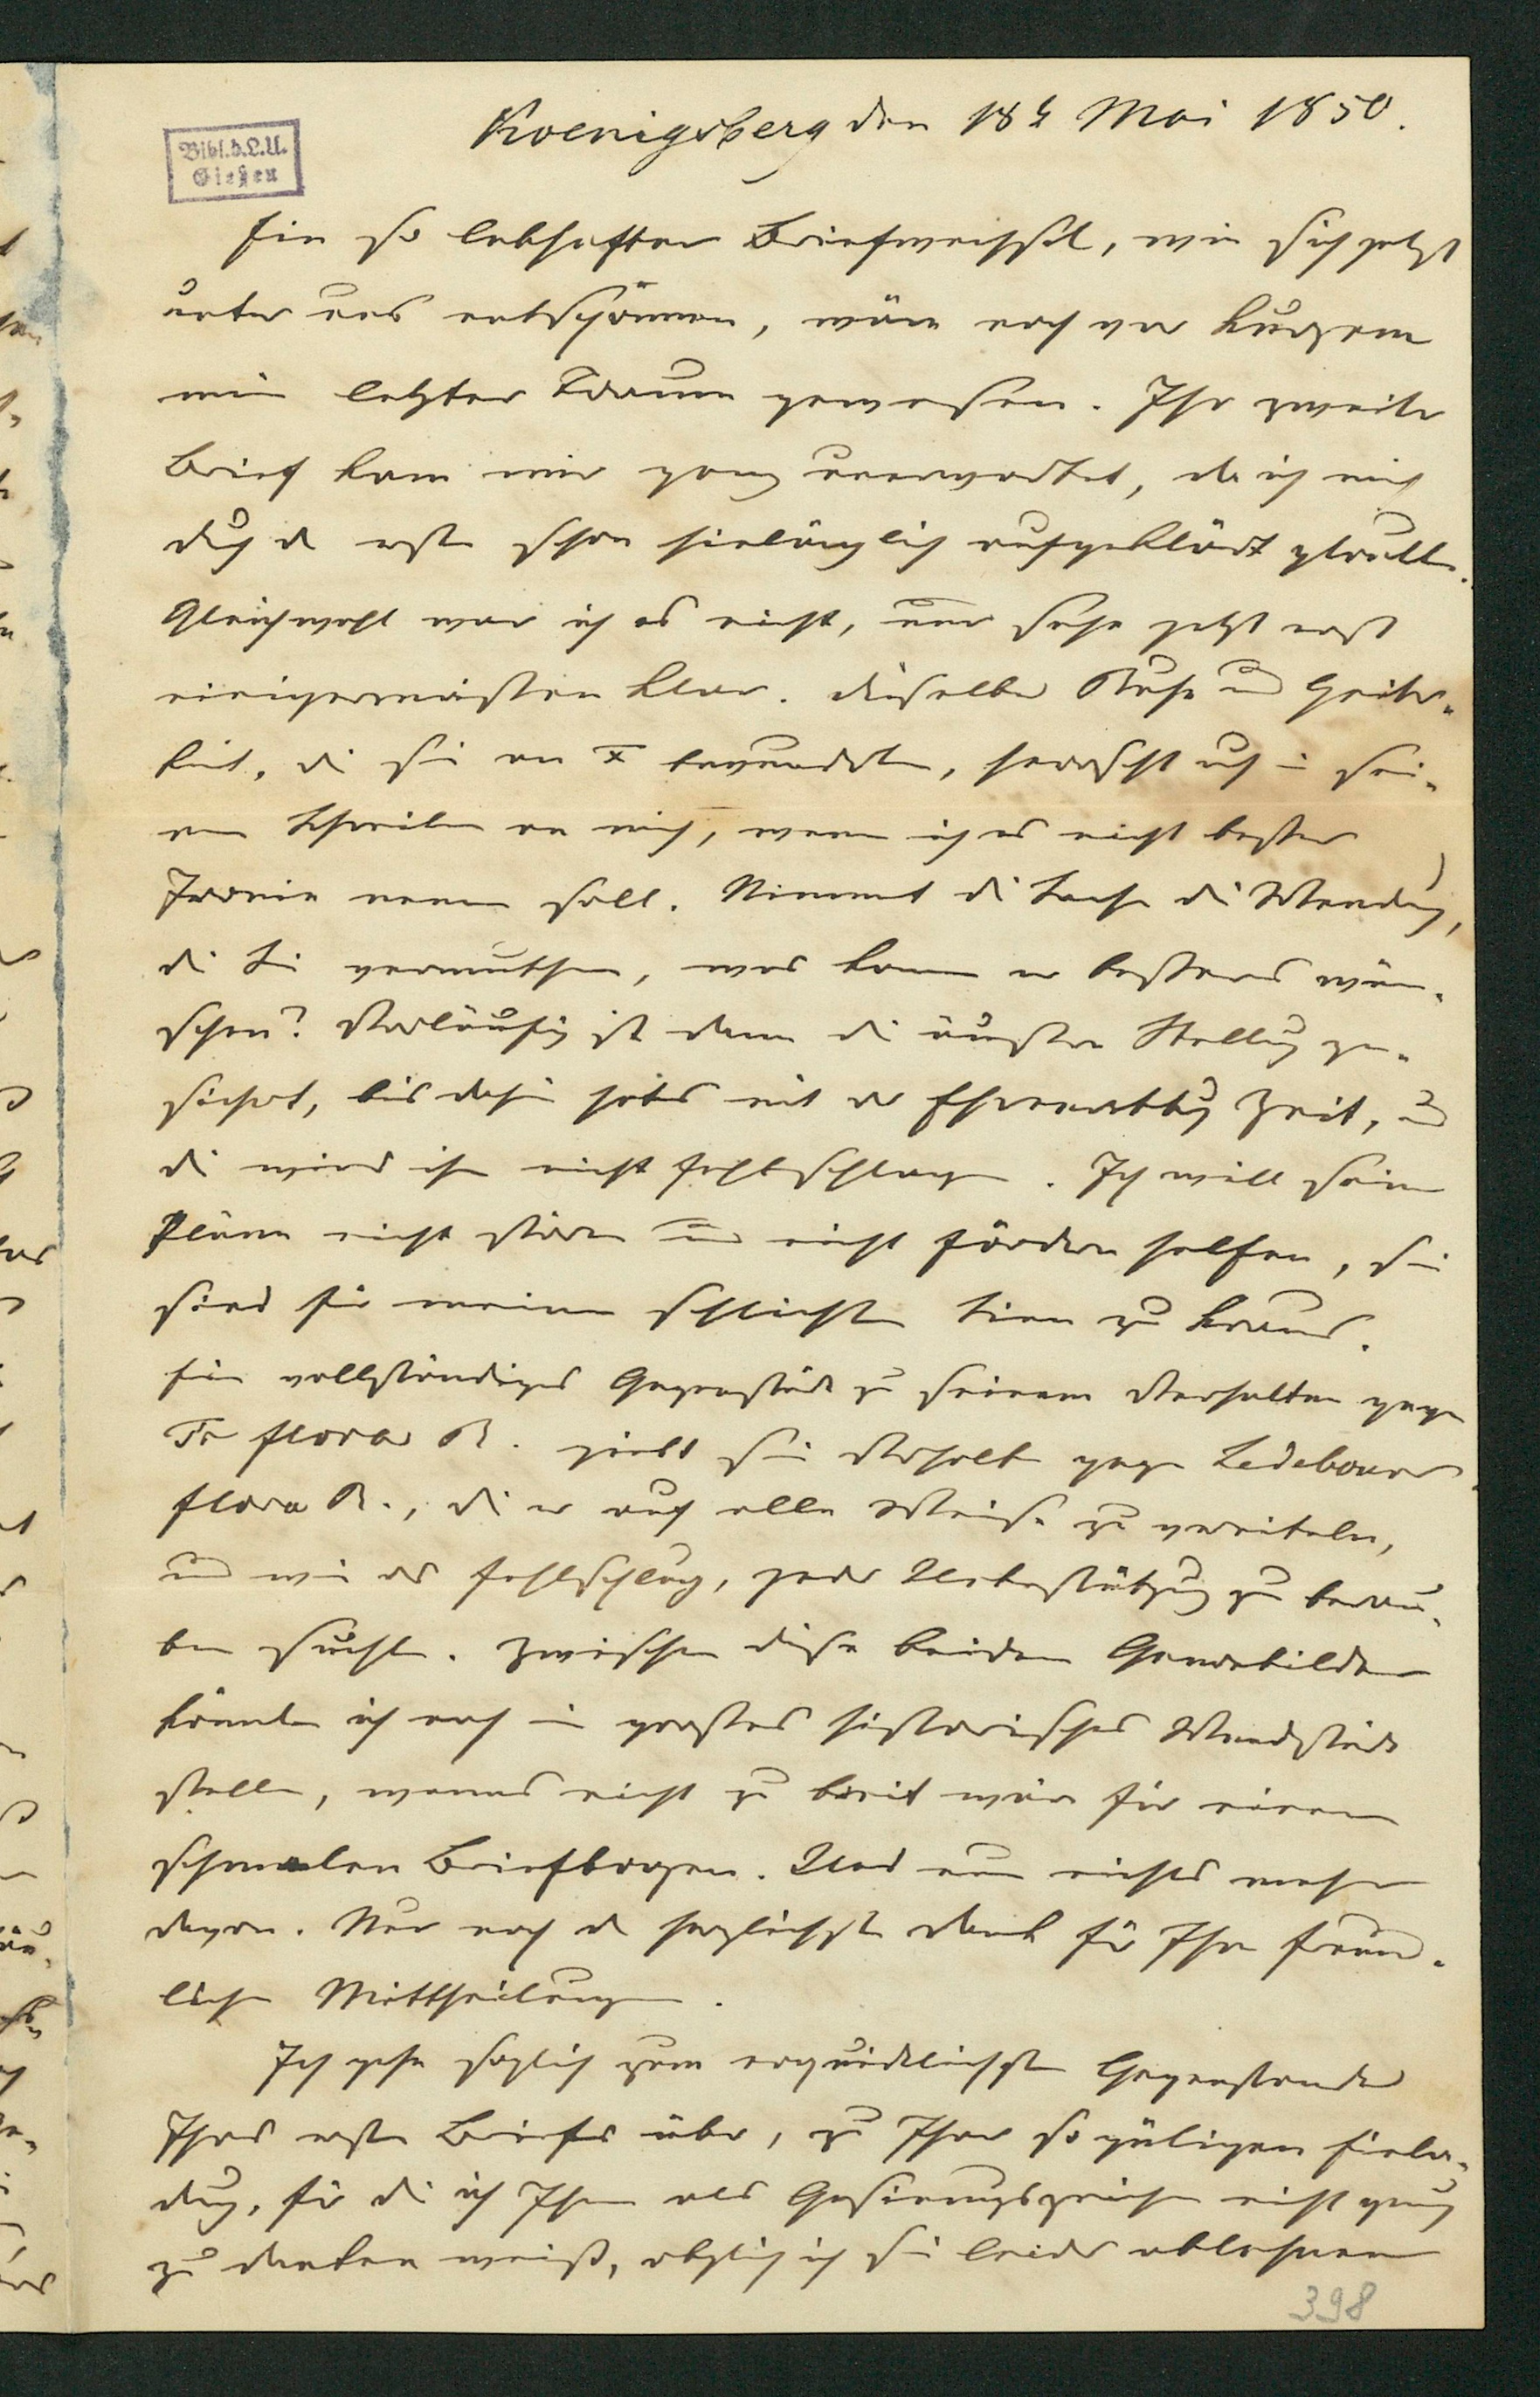 Koenigsberg den 18t Mai 1850.
Bibl. d. L. U.
Gießen
Ein so lebhafter Briefwechsel, wie sich jetzt
unter uns entsponnen, wäre noch vor Kurzem
mein letzter Traum gewesen. Ihr zweiter
Brief kam mir ganz unerwartet, da ich mich
durch den ersten schon hinlänglich aufgeklärt glaubte.
Gleichwohl war ich es nicht, und sehe jetzt erst
einigermaßen klar. Dieselbe Ruhe und Heiter-
keit, die Sie an X bewundern, herrscht auch in sei-
nem Schreiben an mich, wenn ich es nicht besser
Ironie nennen soll. Nimmt die Sache die Wendung,
die Sie vermuthen, was kann er besseres wün-
schen? Vorläufig ist dann die äußere Stellung ge-
sichert, bis dahin hats mit der Ehrenrettung Zeit, und
die wird ihm nicht fehlschlagen. Ich will seine
Pläne nicht stören und nicht fördern helfen, sie
sind für meinen schlichten Sinn zu kraus.
Ein vollständiges Gegenstück zu seinem Verhalten gegen
Flora R. giebt sein Verhalten gegen Ledebours
Flora R., die er auf alle Weise zu vereiteln,
und wie es fehlschlug, jeder Unterstützung zu berau-
ben suchte. Zwischen diese beiden Genrebilder
könnte ich noch ein großes historisches Wandstück
stellen, wenns nicht zu breit wäre für einen
schmalen Briefbogen. Und nun nichts mehr
davon. Nur noch den herzlichsten Dank für Ihre freund-
lichen Mittheilungen.
Ich gehe sogleich zum erquicklichsten Gegenstande
Ihres ersten Briefes über, zu Ihrer so gütigen Einla-
dung, für die ich Ihnen als Gesinnungszeichen nicht genug
zu danken weiß, obgleich ich sie leider ablehnen
398